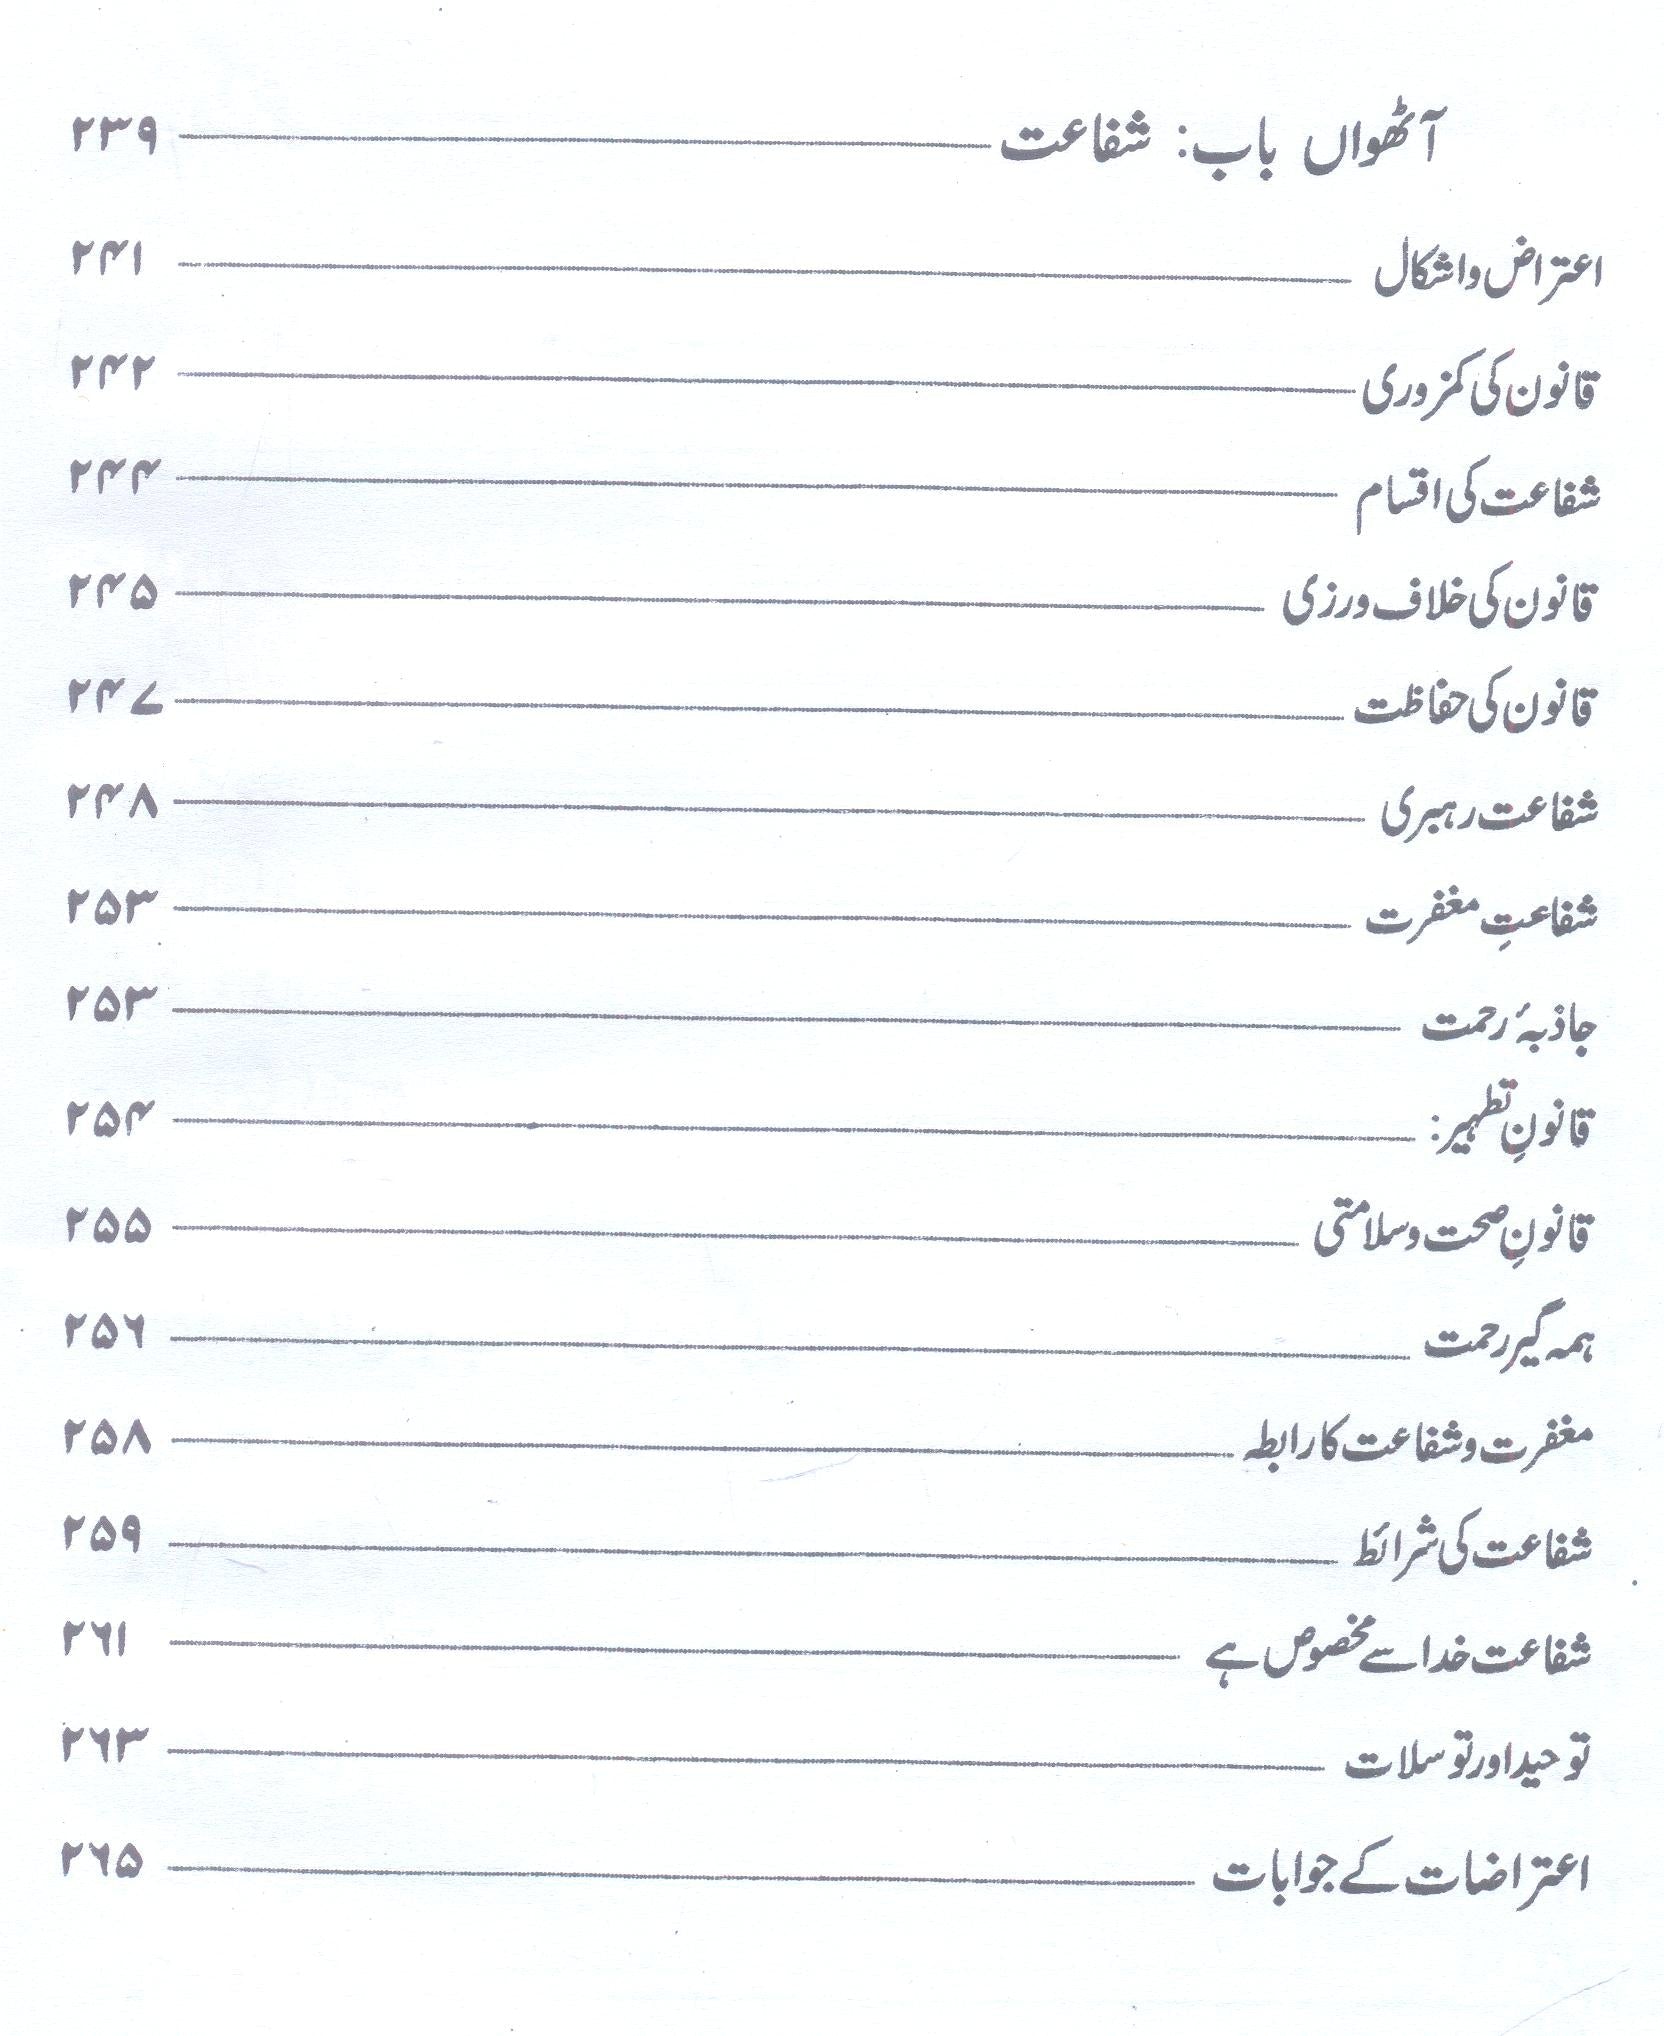 آٹھواں باب: شفاعت ۲۳۹
اعتراض و اشکال ۲۴۱
قانون کی کمزوری ۲۴۲
شفاعت کی اقسام ۲۴۴
قانون کی خلاف ورزی ۲۴۵
قانون کی حفاظت ۲۴۷
شفاعت رہبری ۲۴۸
شفاعتِ مغفرت ۲۵۳
جاذبۂ رحمت ۲۵۳
قانونِ تطہیر: ۲۵۴
قانونِ صحت و سلامتی ۲۵۵
ہمہ گیر رحمت ۲۵۶
مغفرت و شفاعت کا رابطہ ۲۵۸
شفاعت کی شرائط ۲۵۹
شفاعت خدا سے مخصوص ہے ۲۶۱
توحید اور توسلات ۲۶۳
اعتراضات کے جوابات ۲۶۵